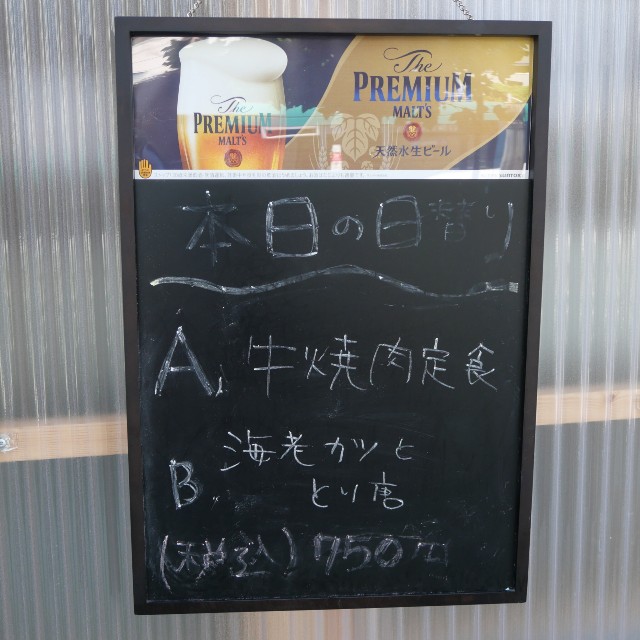 The
PREMIUM
MALT'S
The
PREMIUM
MALT'S
天然水生ビール
SUNTORY
本日の日替り
A. 牛焼肉定食
B 海老カツと
とり唐
(税込) 750元